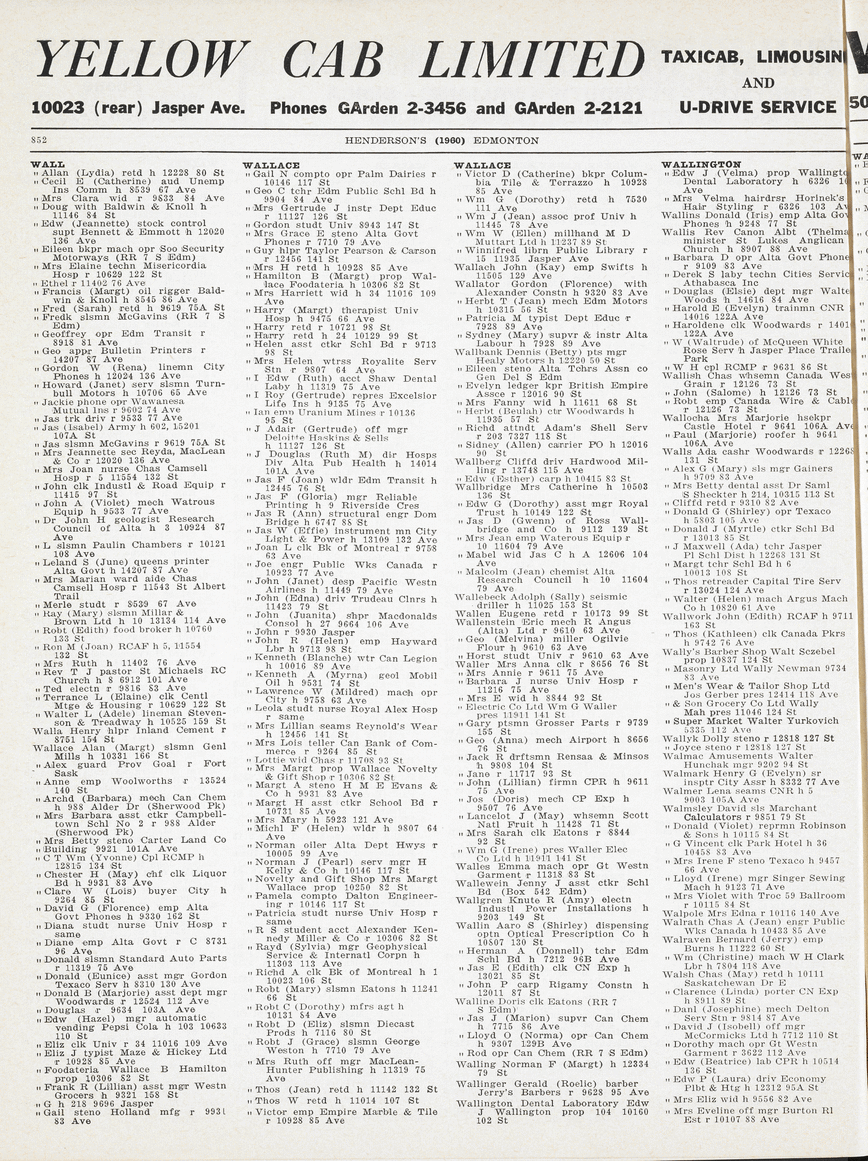 YELLOW CAB LIMITED
TAXICAB, LIMOUSIN
AND
10023 (rear) Jasper Ave. Phones GArden 2-3456 and GArden 2-2121 U-DRIVE SERVICE
852 HENDERSON'S (1960) EDMONTON
WALL
" Allan (Lydia) retd h 12228 80 St
" Cecil E (Catherine) aud Unemp
Ins Comm h 8539 67 Ave
" Mrs Clara wid r 9633 84 Ave
" Doug with Baldwin & Knoll h
11146 84 St
" Edw (Jeannette) stock control
supt Bennett & Emmott h 12020
136 Ave
" Eileen bkpr mach opr Soo Security
Motorways (RR 7 S Edm)
" Mrs Elaine techn Misericordia
Hosp r 10629 122 St
" Ethel r 11402 76 Ave
" Francis (Margt) oil rigger Bald-
win & Knoll h 8545 86 Ave
" Fred (Sarah) retd h 9619 75A St
" Fredk slsmn McGavins (RR 7 S
Edm)
" Geoffrey opr Edm Transit r
8918 81 Ave
" Geo appr Bulletin Printers r
14207 87 Ave
" Gordon W (Rena) linemn City
Phones h 12024 136 Ave
" Howard (Janet) serv slsmn Turn-
bull Motors h 10706 65 Ave
" Jackie phone opr Wawanesa
Mutual Ins r 9602 74 Ave
" Jas trk driv r 9533 77 Ave
" Jas (Isabel) Army h 602, 15201
107A St
" Jas slsmn McGavins r 9619 75A St
" Mrs Jeannette sec Reyda, MacLean
& Co r 12020 136 Ave
" Mrs Joan nurse Chas Camsell
Hosp r 5 11554 132 St
" John clk Industl & Road Equip r
11415 97 St
" John A (Violet) mech Watrous
Equip h 9533 77 Ave
" Dr John H geologist Research
Council of Alta h 3 10924 87
Ave
" L slsmn Paulin Chambers r 10121
108 Ave
" Leland S (June) queens printer
Alta Govt h 14207 87 Ave
" Mrs Marian ward aide Chas
Camsell Hosp r 11543 St Albert
Trail
" Merle studt r 8539 67 Ave
" Ray (Mary) slsmn Millar &
Brown Ltd h 10 13134 114 Ave
" Robt (Edith) food broker h 10760
133 St
" Ron M (Joan) RCAF h 5, 11554
132 St
" Mrs Ruth h 11402 76 Ave
" Rev T J pastor St Michaels RC
Church h 8 6912 101 Ave
" Ted electn r 9816 83 Ave
" Terrance L (Elaine) clk Centl
Mtge & Housing r 10629 122 St
" Walter L (Adele) lineman Steven-
son & Treadway h 10525 159 St
Walla Henry hlpr Inland Cement r
8751 154 St
Wallace Alan (Margt) slsmn Genl
Mills h 10331 166 St
" Alex guard Prov Goal r Fort
Sask
" Anne emp Woolworths r 13524
140 St
" Archd (Barbara) mech Can Chem
h 988 Alder Dr (Sherwood Pk)
" Mrs Barbara asst ctkr Campbell-
town Schl No 2 r 988 Alder
(Sherwood Pk)
" Mrs Betty steno Carter Land Co
" Building 9921 101A Ave
" C T Wm (Yvonne) Cpl RCMP h
12815 134 St
" Chester H (May) chf clk Liquor
Bd h 9931 83 Ave
" Clare W (Lois) buyer City h
9264 85 St
" David G (Florence) emp Alta
Govt Phones h 9330 162 St
" Diana studt nurse Univ Hosp r
same
" Diane emp Alta Govt r C 8731
96 Ave
" Donald slsmn Standard Auto Parts
r 11319 75 Ave
" Donald (Eunice) asst mgr Gordon
Texaco Serv h 8310 130 Ave
" Donald B (Marjorie) asst dept mgr
Woodwards r 12524 112 Ave
" Douglas r 9634 103A Ave
" Edw (Hazel) mgr automatic
vending Pepsi Cola h 103 10633
110 St
" Eliz clk Univ r 34 11016 109 Ave
" Eliz J typist Maze & Hickey Ltd
r 10928 85 Ave
" Foodateria Wallace B Hamilton
prop 10306 82 St
" Frank R (Lillian) asst mgr Westn
Grocers h 9321 158 St
" G h 218 9696 Jasper
" Gail steno Holland mfg r 9931
83 Ave
WALLACE
" Gail N compto opr Palm Dairies r
10146 117 St
" Geo C tchr Edm Public Schl Bd h
9904 84 Ave
" Mrs Gertrude J instr Dept Educ
r 11127 126 St
" Gordon studt Univ 8943 147 St
" Mrs Grace E steno Alta Govt
Phones r 7710 79 Ave
" Guy hlpr Taylor Pearson & Carson
r 12456 141 St
" Mrs H retd h 10928 85 Ave
" Hamilton B (Margt) prop Wal-
lace Foodateria h 10306 82 St
" Mrs Harriett wid h 34 11016 109
Ave
" Harry (Margt) therapist Univ
Hosp h 9475 66 Ave
" Harry retd r 10721 98 St
" Harry retd h 24 10129 99 St
" Helen asst ctkr Schl Bd r 9713
98 St
" Mrs Helen wtrss Royalite Serv
Stn r 9807 64 Ave
" I Edw (Ruth) acct Shaw Dental
Laby h 11319 75 Ave
" I Roy (Gertrude) repres Excelsior
Life Ins h 9135 75 Ave
" Ian emp Uranium Mines r 10136
95 St
" J Adair (Gertrude) off mgr
Deloitte Haskins & Sells
h 11127 126 St
" J Douglas (Ruth M) dir Hosps
Div Alta Pub Health h 14014
101A Ave
" Jas F (Joan) wldr Edm Transit h
12445 76 St
" Jas F (Gloria) mgr Reliable
Printing h 9 Riverside Cres
" Jas R (Ann) structural engr Dom
Bridge h 6747 88 St
" Jas W (Effie) instrument mn City
Light & Power h 13109 132 Ave
" Joan L clk Bk of Montreal r 9758
63 Ave
" Joe engr Public Wks Canada r
10923 77 Ave
" John (Janet) desp Pacific Westn
Airlines h 11449 79 Ave
" John (Edna) driv Trudeau Clnrs h
11423 79 St
" John (Juanita) shpr Macdonalds
Consol h 27 9664 106 Ave
" John r 9930 Jasper
" John R (Helen) emp Hayward
Lbr h 9713 98 St
" Kenneth (Blanche) wtr Can Legion
h 10016 89 Ave
" Kenneth A (Myrna) geol Mobil
Oil h 9531 74 St
" Lawrence W (Mildred) mach opr
City h 9758 63 Ave
" Leola studt nurse Royal Alex Hosp
r same
" Mrs Lillian seams Reynold's Wear
h 12456 141 St
" Mrs Lois teller Can Bank of Com-
merce r 9264 85 St
" Lottie wid Chas r 11708 93 St
" Mrs Margt prop Wallace Novelty
& Gift Shop r 10306 82 St
" Margt A steno H M E Evans &
Co h 9931 83 Ave
" Margt H asst ctkr School Bd r
10731 85 Ave
" Mrs Mary h 5923 121 Ave
" Michl F (Helen) wldr h 9807 64
Ave
" Norman oiler Alta Dept Hwys r
10005 99 Ave
" Norman J (Pearl) serv mgr H
Kelly & Co h 10146 117 St
" Novelty and Gift Shop Mrs Margt
Wallace prop 10250 82 St
" Pamela compto Dalton Engineer-
ing r 10146 117 St
" Patricia studt nurse Univ Hosp r
same
" R S student acct Alexander Ken-
nedy Miller & Co r 10306 82 St
" Rayd (Sylvia) mgr Geophysical
Service & Internatl Corpn h
11303 113 Ave
" Richd A clk Bk of Montreal h 1
10023 106 St
" Robt (Mary) slsmn Eatons h 11241
66 St
" Robt C (Dorothy) mfrs agt h
10131 84 Ave
" Robt D (Eliz) slsmn Diecast
Prods h 7116 80 St
" Robt J (Grace) slsmn George
Weston h 7710 79 Ave
" Mrs Ruth off mgr MacLean-
Hunter Publishing h 11319 75
Ave
" Thos (Jean) retd h 11142 132 St
" Thos W retd h 11014 107 St
" Victor emp Empire Marble & Tile
r 10928 85 Ave
WALLACE
" Victor D (Catherine) bkpr Colum-
bia Tile & Terrazzo h 10928
85 Ave
" Wm G (Dorothy) retd h 7530
111 Ave
" Wm J (Jean) assoc prof Univ h
11445 78 Ave
" Wm W (Ellen) millhand M D
Muttart Ltd h 11237 89 St
" Winnifred librn Public Library r
15 11935 Jasper Ave
Wallach John (Kay) emp Swifts h
11505 129 Ave
Wallator Gordon (Florence) with
Alexander Constn h 9320 83 Ave
" Herbt T (Jean) mech Edm Motors
h 10315 56 St
" Patricia M typist Dept Educ r
7928 89 Ave
" Sydney (Mary) supvr & instr Alta
Labour h 7928 89 Ave
Wallbank Dennis (Betty) pts mgr
Healy Motors h 12220 50 St
" Eileen steno Alta Tchrs Assn co
Gen Del S Edm
" Evelyn ledger kpr British Empire
Assce r 12016 90 St
" Mrs Fanny wid h 11611 68 St
" Herbt (Beulah) ctr Woodwards h
11935 57 St
" Richd attndt Adam's Shell Serv
r 203 7327 118 St
" Sidney (Allen) carrier PO h 12016
90 St
Wallberg Cliffd driv Hardwood Mil-
ling r 13748 115 Ave
" Edw (Esther) carp h 10415 83 St
Wallbridge Mrs Catherine h 10503
136 St
" Edw G (Dorothy) asst mgr Royal
Trust h 10149 122 St
" Jas D (Gwenn) of Ross Wall-
bridge and Co h 9112 139 St
" Mrs Jean emp Waterous Equip r
10 11604 79 Ave
" Mabel wid Jas C h A 12606 104
Ave
" Malcolm (Jean) chemist Alta
Research Council h 10 11604
79 Ave
Wallebeck Adolph (Sally) seismic
driller h 11025 153 St
Wallen Eugene retd r 10173 99 St
Wallenstein Eric mech R Angus
(Alta) Ltd r 9610 63 Ave
" Geo (Melvina) miller Ogilvie
Flour h 9610 63 Ave
" Horst studt Univ r 9610 63 Ave
Waller Mrs Anna clk r 8656 76 St
" Mrs Annie r 9611 75 Ave
" Barbara J nurse Univ Hosp r
11216 75 Ave
" Mrs E wid h 8844 92 St
" Electric Co Ltd Wm G Waller
pres 11911 141 St
" Gary ptsmn Grosser Parts r 9739
155 St
" Geo (Anna) mech Airport h 8656
76 St
" Jack R drftsmn Rensaa & Minsos
h 9808 104 St
" Jane r 11717 93 St
" John (Lillian) firmn CPR h 9611
75 Ave
" Jos (Doris) mech CP Exp h
9507 76 Ave
" Lancelot J (May) whsemn Scott
Natl Fruit h 11428 71 St
" Mrs Sarah clk Eatons r 8844
92 St
" Wm G (Irene) pres Waller Elec
Co Ltd h 11911 141 St
Walles Emma mach opr Gt Westn
Garment r 11318 83 St
Wallewein Jenny J asst ctkr Schl
Bd (Box 542 Edm)
Wallgren Knute R (Amy) electn
Industl Power Installations h
9203 149 St
Wallin Aaro S (Shirley) dispensing
optn Optical Prescription Co h
10807 130 St
" Herman A (Donnell) tchr Edm
Schl Bd h 7212 96B Ave
" Jas E (Edith) clk CN Exp h
13021 85 St
" John P carp Rigamy Constn h
12011 87 St
Walline Doris clk Eatons (RR 7
S Edm)
" Jas J (Marion) supvr Can Chem
h 7715 86 Ave
" Lloyd O (Norma) opr Can Chem
h 9307 129B Ave
" Rod opr Can Chem (RR 7 S Edm)
Walling Norman F (Margt) h 12334
79 St
Wallinger Gerald (Roelic) barber
Jerry's Barbers r 9628 95 Ave
Wallington Dental Laboratory Edw
J Wallington prop 104 10160
102 St
WALLINGTON
" Edw J (Velma) prop Wallingto
Dental Laboratory h 6326 10
Ave
" Mrs Velma hairdrsr Horinek's
Hair Styling r 6326 103 Av
Wallins Donald (Iris) emp Alta Gov
Phones h 9248 77 St
Wallis Rev Canon Albt (Thelma
minister St Lukes Anglican
Church h 8907 88 Ave
" Barbara D opr Alta Govt Phone
r 9109 83 Ave
" Derek S laby techn Cities Servic
Athabasca Inc
" Douglas (Elsie) dept mgr Walte
Woods h 14616 84 Ave
" Harold E (Evelyn) trainmn CNR
14016 122A Ave
" Haroldene clk Woodwards r 1401
122A Ave
" W (Waltrude) of McQueen White
Rose Serv h Jasper Place Traile
Park
" W H opl RCMP r 9631 86 St
Wallish Chas whsemn Canada Wes
Grain r 12126 73 St
" John (Salome) h 12126 73 St
" Robt emp Canada Wire & Cabl
r 12126 73 St
Wallocha Mrs Marjorie hsekpr
Castle Hotel r 9641 106A Ave
" Paul (Marjorie) roofer h 9641
106A Ave
Walls Ada cashr Woodwards r 12268
131 St
" Alex G (Mary) sls mgr Gainers
h 9709 83 Ave
" Mrs Betty dental asst Dr Saml
S Sheckter h 214, 10315 113 St
" Cliffd retd r 9310 82 Ave
" Donald G (Shirley) opr Texaco
h 5803 105 Ave
" Donald J (Myrtle) ctkr Schl Bd
r 13013 85 St
" J Maxwell (Ada) tchr Jasper
Pl Schl Dist h 12268 131 St
" Margt tchr Schl Bd h 6
10013 108 St
" Thos retreader Capital Tire Serv
r 13024 124 Ave
" Walter (Helen) mach Argus Mach
Co h 10820 61 Ave
Wallwork John (Edyth) RCAF h 9711
163 St
" Thos (Kathleen) clk Canada Pkrs
h 9742 76 Ave
Wally's Barber Shop Walt Sczebel
prop 10837 124 St
" Masonry Ltd Wally Newman 9734
83 Ave
" Men's Wear & Tailor Shop Ltd
Jos Gerber pres 12414 118 Ave
" & Son Grocery Co Ltd Wally
Mah pres 11046 124 St
" Super Market Walter Yurkovich
5335 112 Ave
Wallyk Dolly steno r 12818 127 St
" Joyce steno r 12818 127 St
Walmac Amusements Walter
Hunchak mgr 9202 94 St
Walmark Henry G (Evelyn) sr
insptr City Assr h 8332 77 Ave
Walmer Lena seams CNR h 5
9003 105A Ave
Walmsley David sls Marchant
Calculators r 9851 79 St
" Donald (Violet) reprmn Robinson
& Sons h 10115 84 St
" G Vincent clk Park Hotel h 36
10458 83 Ave
" Mrs Irene F steno Texaco h 9457
66 Ave
" Lloyd (Irene) mgr Singer Sewing
Mach h 9123 71 Ave
" Mrs Violet with Troc 59 Ballroom
r 10115 84 St
Walpole Mrs Edna r 10116 140 Ave
Walrath Chas A (Jean) engr Public
Wks Canada h 10433 85 Ave
Walraven Bernard (Jerry) emp
Burns h 11222 60 St
" Wm (Christine) mach W H Clark
Lbr h 7804 118 Ave
Walsh Chas (May) retd h 10111
Saskatchewan Dr E
" Clarence (Linda) porter CN Exp
h 8911 89 St
" Danl (Josephine) mech Delton
Serv Stn r 9814 87 Ave
" David J (Isobell) off mgr
McCormicks Ltd h 7712 110 St
" Dorothy mach opr Gt Westn
Garment r 3622 112 Ave
" Edw (Beatrice) lab CPR h 10514
136 St
" Edw P (Laura) driv Economy
Plbt & Htg h 12312 95A St
" Mrs Eliz wid h 9556 82 Ave
" Mrs Eveline off mgr Burton Rl
Est r 10107 88 Ave